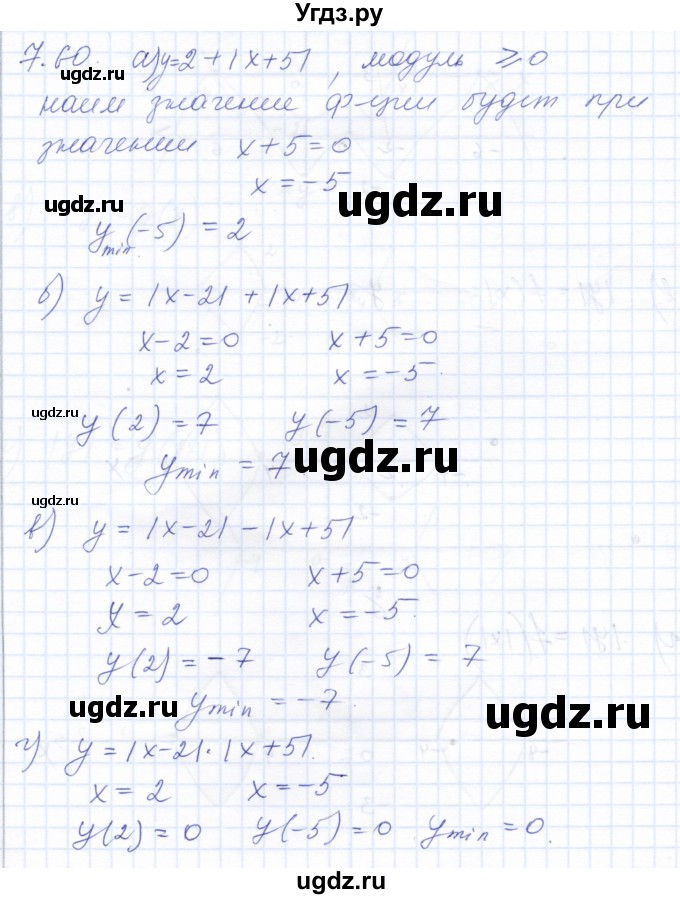 Угдз.ру
7.60. а) y=2+|x+5| , модуль ⩾0
наим значение ф-ции будет при
значении x+5=0
x=-5.
ugdz.ru
ugdz.ru
y min (-5) = 2
б) y = |x-2| + |x+5|
x-2=0 x+5=0
x=2 x=-5.
ugdz.ru
y(2)=7 y(-5)=7
ymin = 7
ugdz.ru
ugdz.ru
в) y = |x-2| - |x+5|
x-2=0 x+5=0
x=2 x=-5.
y(2)=-7 y(-5)=7
ymin = -7.
ugdz.ru
ugdz.ru
г) y=|x-2|·|x+5|.
x=2 x=-5
y(2)=0 y(-5)=0 ymin=0.
ugdz.ru